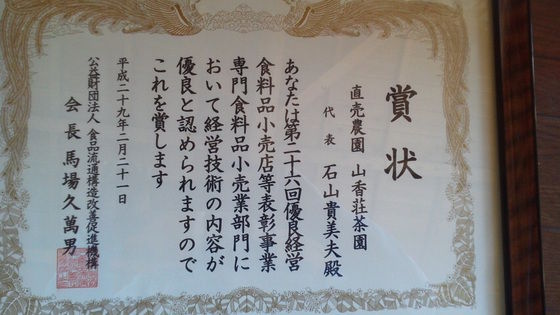 賞状
直売農園 山香荘茶園
代表 石山貴美夫殿
あなたは第二十六回優良経営
食料品小売店等表彰事業
専門食料品小売業部門に
おいて経営技術の内容が
優良と認められますので
これを賞します
平成二十九年二月二十一日
公益財団法人 食品流通構造改善促進機構
会長 馬場久萬男